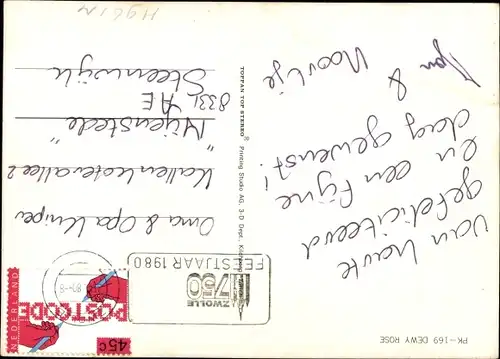 van harte
gefeliciteerd
en een fijne
dag gewenst!
&
Noortje
Oma & Opa Kuiper
Kallenkotevallee 2
"Nijenstede"
8331 AE
Steenwijk
TOPPAN TOP STEREO® Printing Studio AG, 3-D Dept.
PK-169 DEWY ROSE
FEESTJAAR 1980
750
ZWOLLE
NEDERLAND
POSTCODE
45c